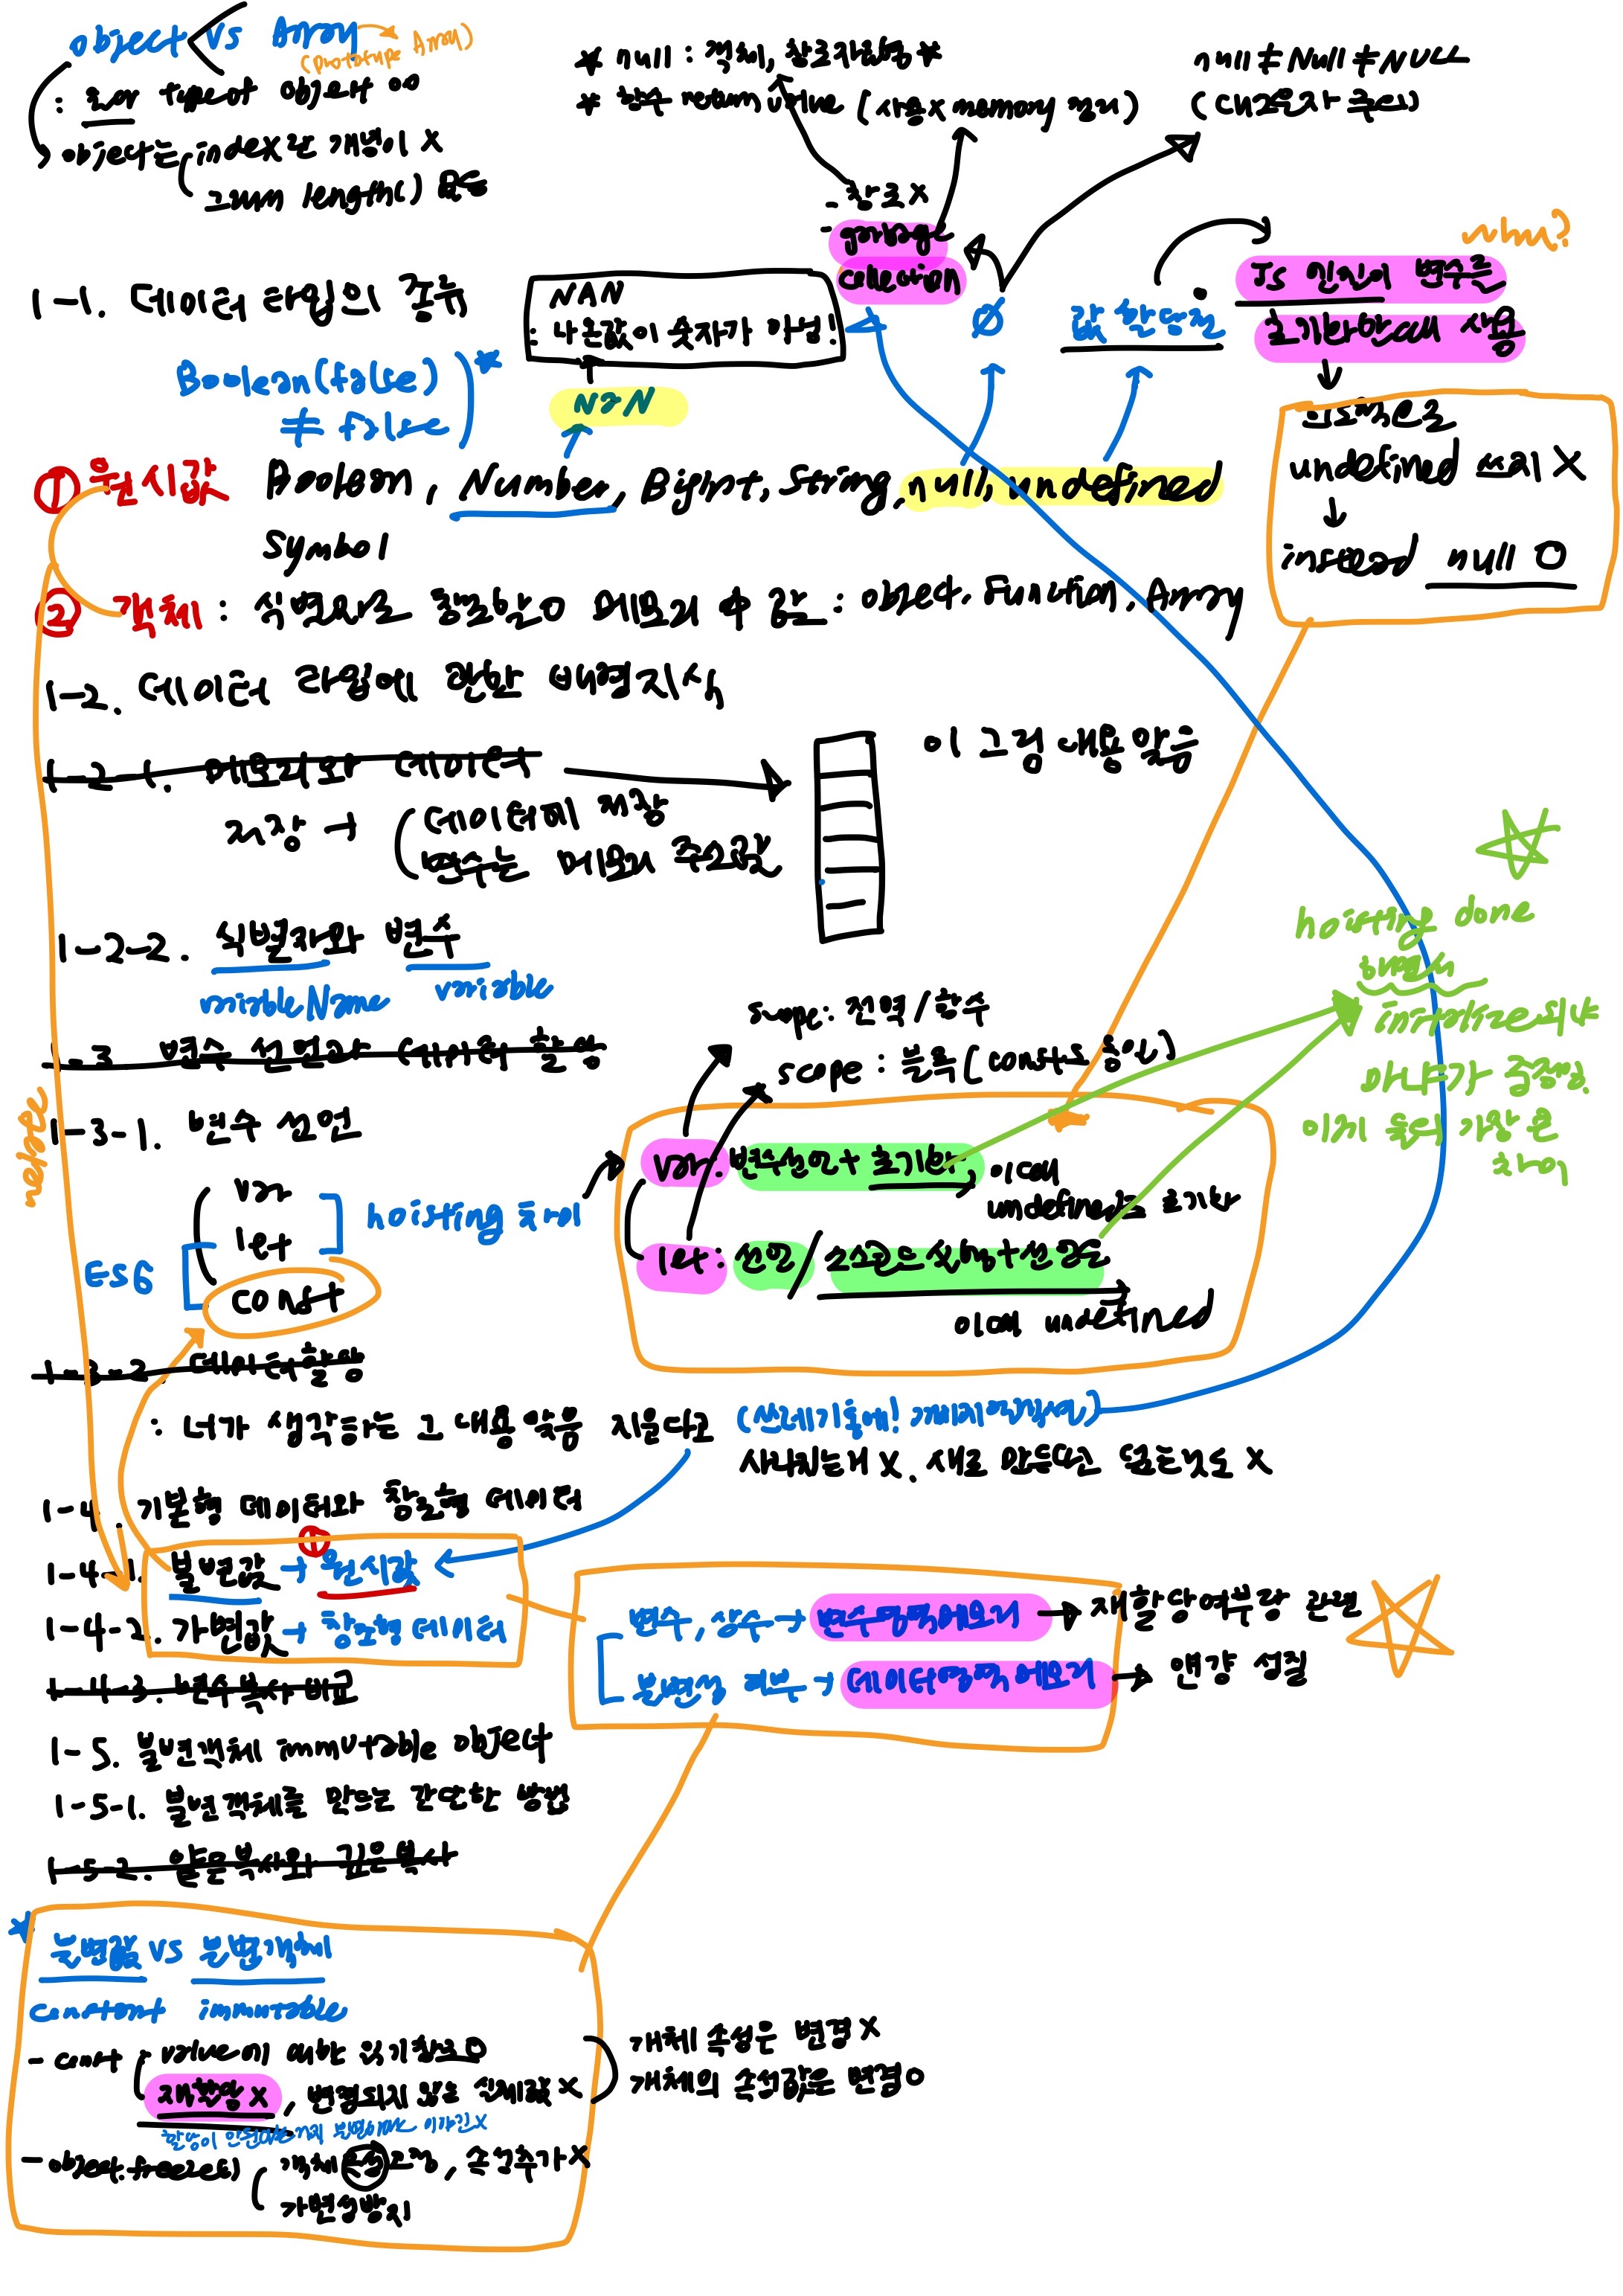 object vs Array
(prototype Array)
: 둘다 typeof object
object는 index란 개념이 X
그래서 length() 없음
* null : 객체, *
* 함수 return value (사용X memory 정리)
null ≠ Null ≠ NULL
(대소문자 주의)
- 참조X
- garbage
collection
Ø
값 할당전
why?
JS 엔진이 변수를
초기화할때 사용
의도적으로
undefined 쓰지 X
instead null O
1-1. 데이터 타입의 종류
NAN
: 나온값이 숫자가 아님!
NaN
Boolean(false)
≠ false
*
① 원시값 Boolean, Number, BigInt, String, null, undefined
Symbol
② 객체 : 식별자로 참조할 메모리 中 값 : object, Function, Array
1-2. 데이터 타입에 관한 배경지식
1-2-1. 메모리와 데이터
이 그림 내용 맞음
저장 → 데이터에 저장
변수는 메모리 주소값
1-2-2. 식별자와 변수
variableName variable
1-3 변수 선언과 데이터 할당
scope: 전역/함수
scope : 블록 (const도 동일)
hoisting done
하면서
initialize 되냐
마냐가
이게 둘의 가장 큰
차이
1-3-1. 변수 선언
var
let
const
ES6
hoisting 차이
var: 변수선언 + 초기화, 이때
undefined로 초기화
let: 선언 /
이때 undefined
1-3-2. 데이터할당
: 너가 생각하는 그 내용 맞음 지운다고 (쓰레기통에!
사라지는게 X. 새로 만든다고 X
1-4. 기본형 데이터와 참조형 데이터
1-4-1. 불변값 → 원시값
①
1-4-2. 가변값 → 참조형 데이터
변수, 상수 → 변수영역메모리 → 재할당여부랑 관련
불변성 여부 → 데이터영역 메모리 → 얘 성질
1-4-3. 변수복사 비교
1-5. 불변객체 immutable object
1-5-1. 불변객체를 만드는 간단한 방법
1-5-2. 얕은복사와 깊은복사
* 불변값 vs 불변객체
constant immutable
- const : value에 대한 읽기참조O
재할당 X, 변경되지 않는 실제값 X
개체 속성은 변경 X
개체의 속성값은 변경 O
- object.freeze() 객체 속성 고정, 속성추가 X
가변성방지